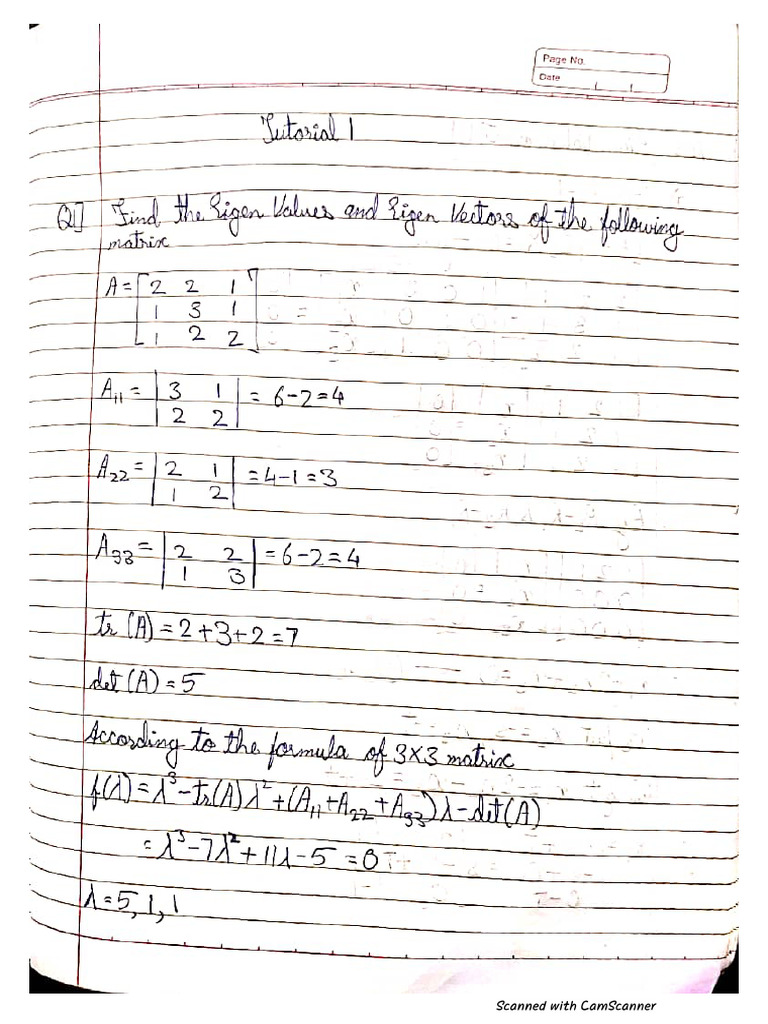 Page No.
Date
Tutorial 1
Q1] Find the Eigen Values and Eigen Vectors of the following
matrix
A = [2 2 1
1 3 1
1 2 2]
A₁₁ = |3 1
2 2| = 6-2=4
A₂₂ = |2 1
1 2| = 4-1=3
A₃₃ = |2 2
1 3| = 6-2=4
tr (A) = 2+3+2=7
det (A) = 5
According to the formula of 3×3 matrix
f(λ) = λ³-tr(A)λ²+(A₁₁+A₂₂+A₃₃)λ-det(A)
= λ³-7λ²+11λ-5=0
λ=5,1,1
Scanned with CamScanner